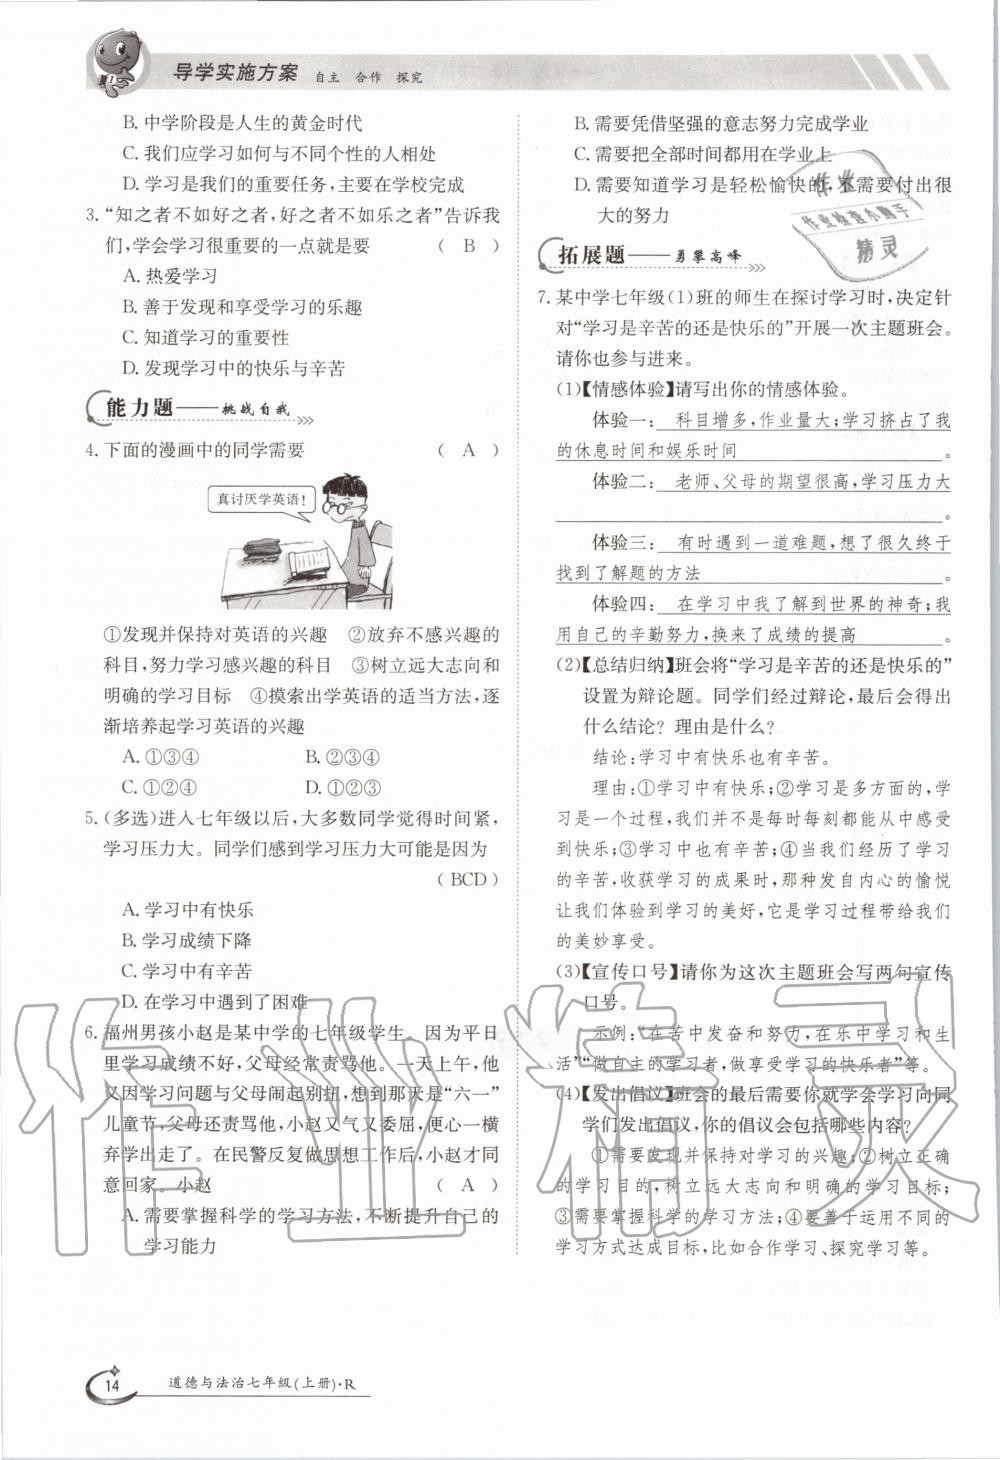 导学实施方案 自主 合作 探究
B. 中学阶段是人生的黄金时代
C. 我们应学习如何与不同个性的人相处
D. 学习是我们的重要任务,主要在学校完成
3. “知之者不如好之者,好之者不如乐之者”告诉我
们,学会学习很重要的一点就是要 ( B )
A. 热爱学习
B. 善于发现和享受学习的乐趣
C. 知道学习的重要性
D. 发现学习中的快乐与辛苦
能力题——挑战自我
4. 下面的漫画中的同学需要 ( A )
真讨厌学英语!
①发现并保持对英语的兴趣 ②放弃不感兴趣的
科目,努力学习感兴趣的科目 ③树立远大志向和
明确的学习目标 ④摸索出学英语的适当方法,逐
渐培养起学习英语的兴趣
A. ①③④ B. ②③④
C. ①②④ D. ①②③
5. (多选)进入七年级以后,大多数同学觉得时间紧,
学习压力大。同学们感到学习压力大可能是因为
( BCD )
A. 学习中有快乐
B. 学习成绩下降
C. 学习中有辛苦
D. 在学习中遇到了困难
6. 福州男孩小赵是某中学的七年级学生。因为平日
里学习成绩不好,父母经常责骂他。一天上午,他
又因学习问题与父母闹起别扭,想到那天是“六一”
儿童节,父母还责骂他,小赵又气又委屈,便心一横
弃学出走了。在民警反复做思想工作后,小赵才同
意回家。小赵 ( A )
A. 需要掌握科学的学习方法,不断提升自己的
学习能力
B. 需要凭借坚强的意志努力完成学业
C. 需要把全部时间都用在学业上
D. 需要知道学习是轻松愉快的,不需要付出很
大的努力
拓展题——勇攀高峰
7. 某中学七年级(1)班的师生在探讨学习时,决定针
对“学习是辛苦的还是快乐的”开展一次主题班会。
请你也参与进来。
(1)【情感体验】请写出你的情感体验。
体验一: 科目增多,作业量大;学习挤占了我
的休息时间和娱乐时间 。
体验二: 老师、父母的期望很高,学习压力大
。
体验三: 有时遇到一道难题,想了很久终于
找到了解题的方法 。
体验四: 在学习中我了解到世界的神奇;我
用自己的辛勤努力,换来了成绩的提高 。
(2)【总结归纳】班会将“学习是辛苦的还是快乐的”
设置为辩论题。同学们经过辩论,最后会得出
什么结论? 理由是什么?
结论:学习中有快乐也有辛苦。
理由:①学习中有快乐;②学习是多方面的,学
习是一个过程,我们并不是每时每刻都能从中感受
到快乐;③学习中也有辛苦;④当我们经历了学习
的辛苦,收获学习的成果时,那种发自内心的愉悦
让我们体验到学习的美好,它是学习过程带给我们
的美妙享受。
(3)【宣传口号】请你为这次主题班会写两句宣传
口号。
示例:“在苦中发奋和努力,在乐中学习和生
活”“做自主的学习者,做享受学习的快乐者”等。
(4)【发出倡议】班会的最后需要你就学会学习向同
学们发出倡议,你的倡议会包括哪些内容?
①需要发现并保持对学习的兴趣;②树立正确
的学习目的,树立远大志向和明确的学习目标;
③需要掌握科学的学习方法;④要善于运用不同的
学习方式达成目标,比如合作学习、探究学习等。
作业
作业检查小助手
精灵
作业精灵
14 道德与法治七年级(上册)·R